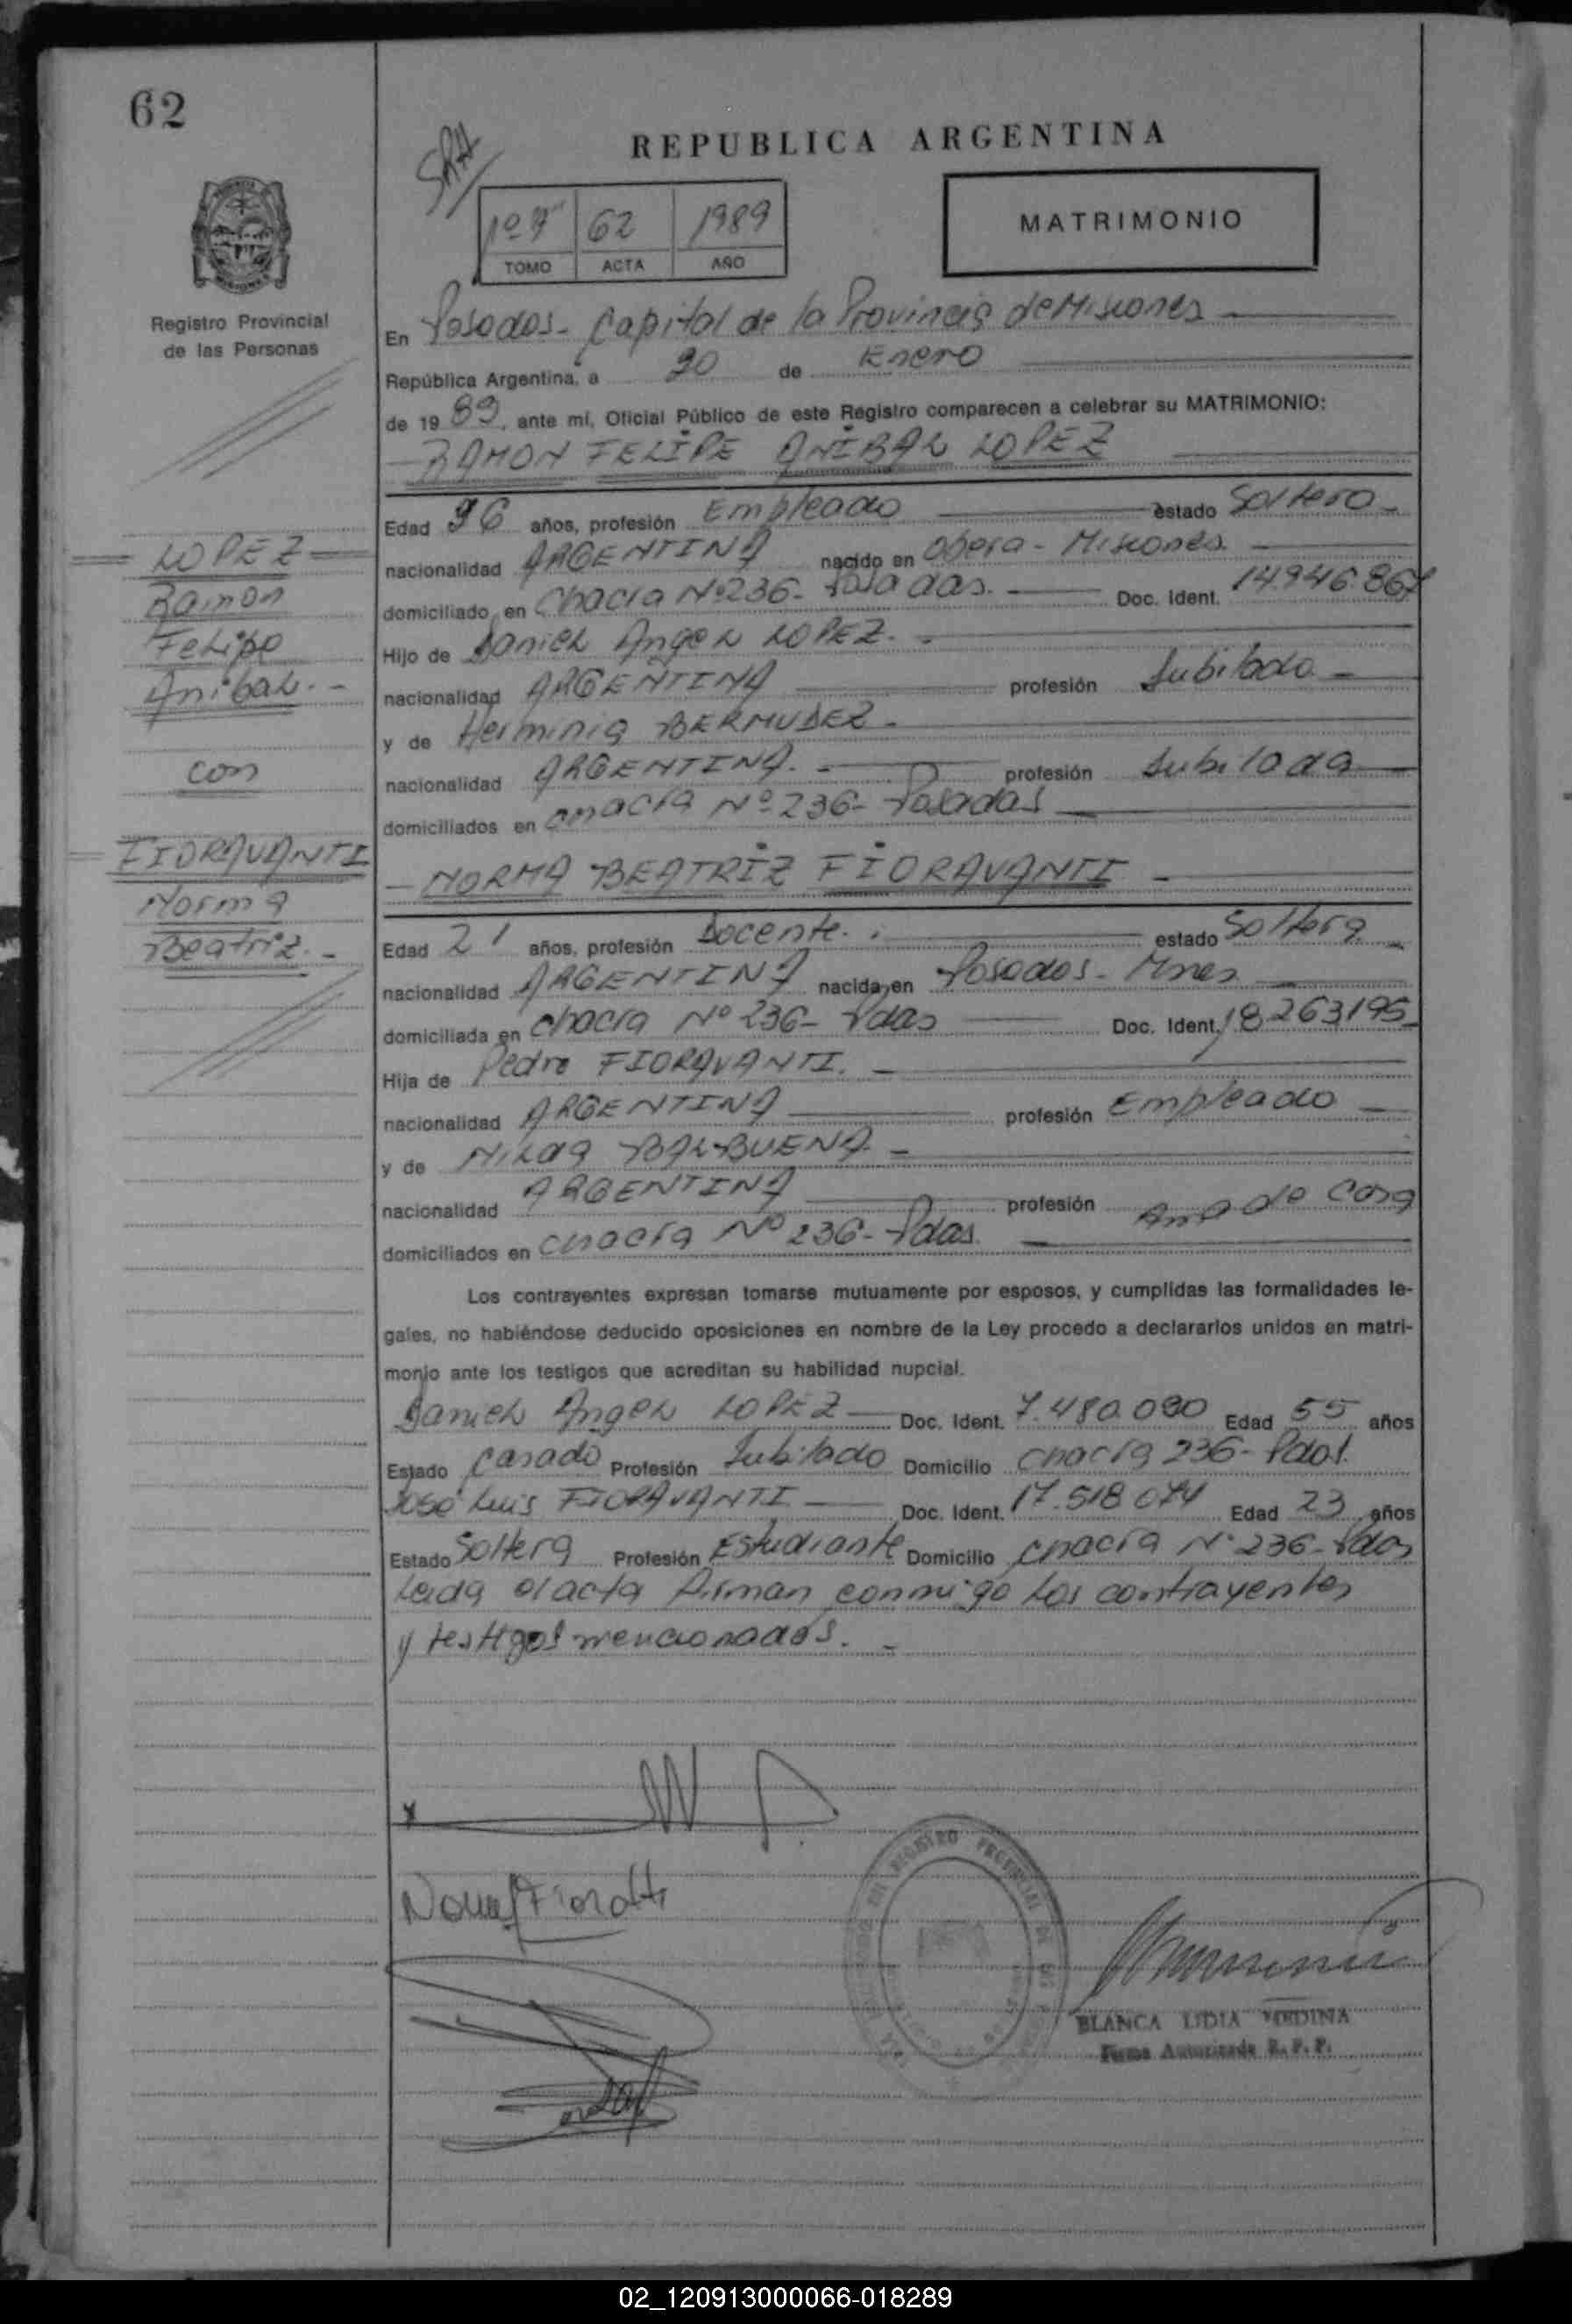 62
REPUBLICA ARGENTINA
62 1989
TOMO ACTA AÑO
MATRIMONIO
Registro Provincial
de las Personas
En Posadas- Capital de la Provincia de Misiones
República Argentina, a de Enero
de 19 89, ante mí, Oficial Público de este Registro comparecen a celebrar su MATRIMONIO:
RAMON FELIPE ANIBAL LOPEZ
Edad años, profesión Empleado estado Soltero
nacionalidad ARGENTINA nacido en Obera - Misiones
domiciliado en Chacra Nº 236- Posadas. Doc. Ident. 14946867
Hijo de Daniel Angel LOPEZ.
nacionalidad ARGENTINA profesión Jubilado
y de Herminia BERMUDEZ.
nacionalidad ARGENTINA. profesión Jubilada
domiciliados en chacra Nº 236- Posadas
NORMA BEATRIZ FIORAVANTI
Edad 21 años, profesión Docente. estado Soltera
nacionalidad ARGENTINA nacida en Posadas- Mnes
domiciliada en chacra Nº 236- Pdas Doc. Ident. 18263195
Hija de Pedro FIORAVANTI.
nacionalidad ARGENTINA profesión Empleado
y de Nilda BALBUENA
nacionalidad ARGENTINA profesión Ama de Casa
domiciliados en chacra Nº 236- Pdas.
Los contrayentes expresan tomarse mutuamente por esposos, y cumplidas las formalidades le-
gales, no habiéndose deducido oposiciones en nombre de la Ley procedo a declararlos unidos en matri-
monio ante los testigos que acreditan su habilidad nupcial.
Daniel Angel LOPEZ Doc. Ident. 7.480.090 Edad 55 años
Estado Casado Profesión Jubilado Domicilio chacra 236- Pdas.
José Luis FIORAVANTI Doc. Ident. 17.518.074 Edad 23 años
Estado Soltero Profesión Estudiante Domicilio chacra Nº 236- Pdas
Leida el acta firman conmigo los contrayentes
y testigos mencionados.
LOPEZ
Ramon
Felipe
Anibal.-
con
FIORAVANTI
Norma
Beatriz.-
BLANCA LIDIA MEDINA
Firma Autorizada R. P. P.
02_120913000066-018289